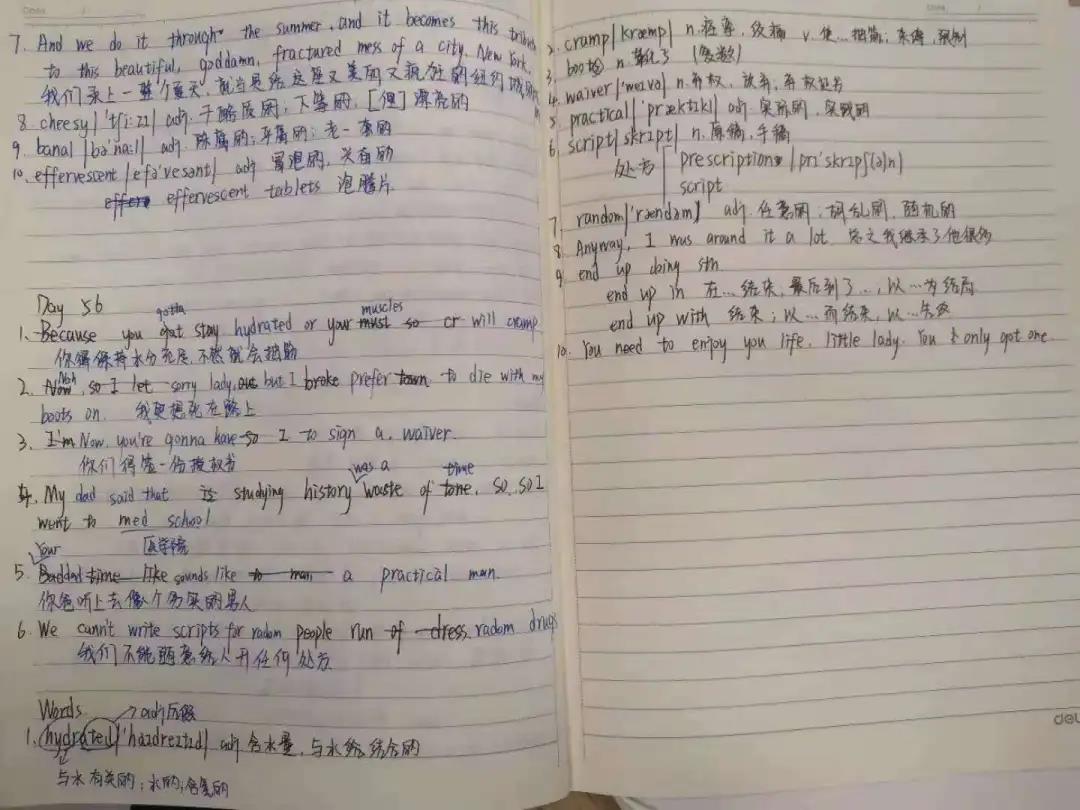 7. And we do it through the summer, and it becomes this tribute
to this beautiful, goddamn, fractured mess of a city, New York.
我们录上一整个夏天,就当是给这座又美丽又疯狂的纽约
8. cheesy |'tʃi:zɪ| adj. 干酪质的;下等的;[俚]漂亮的
9. banal |bə'na:l| adj. 陈腐的;平庸的;老一套的
10. effervescent |efə'vesənt| adj 冒泡的,
effer effervescent tablets 泡腾片
Day 56
gotta muscles
1. Because you gat stay hydrated or your must so or will cramp
你得保持水分充足,不然就会抽筋
2. Now, so I let sorry lady, but I broke prefer town to die with my
boots on. 我更想死在路上
3. I'm Now, you're gonna have so I to sign a. waiver.
你们得签一份授权书
was a time
4. My dad said that is studying history waste of tone, so, so I
went to med school
Your 医学院
5. Baddad time like sounds like to man a practical man.
你爸听上去像个务实的男人
6. We cann't write scripts for radom people run of dress radom drugs
我们不能随意给人开任何处方
Words
→ adj后缀
1. hydrated |'haɪdreɪtɪd| adj 含水量,与水结合的
与水有关的;水的;含氢的
2. cramp |kræmp| n. 痉挛,绞痛 v. 使…抽筋;束缚,限制
3. boots n. 靴子 (复数)
4. waiver |'weɪvə| n. 弃权,放弃;弃权证书
5. practical |'præktɪkl| adj. 实际的,实践的
6. script |skrɪpt| n. 原稿,手稿
处方 prescription |prɪ'skrɪpʃ(ə)n|
script
7. random |'rændəm| adj. 任意的;胡乱的,随机的
8. Anyway, I was around it a lot 总之我继承了他很多
9. end up doing sth
end up in 在…结束,最后到了…,以…为结局
end up with 结束;以…而结束,以…
10. You need to enjoy you life, little lady. You only got one.
deli